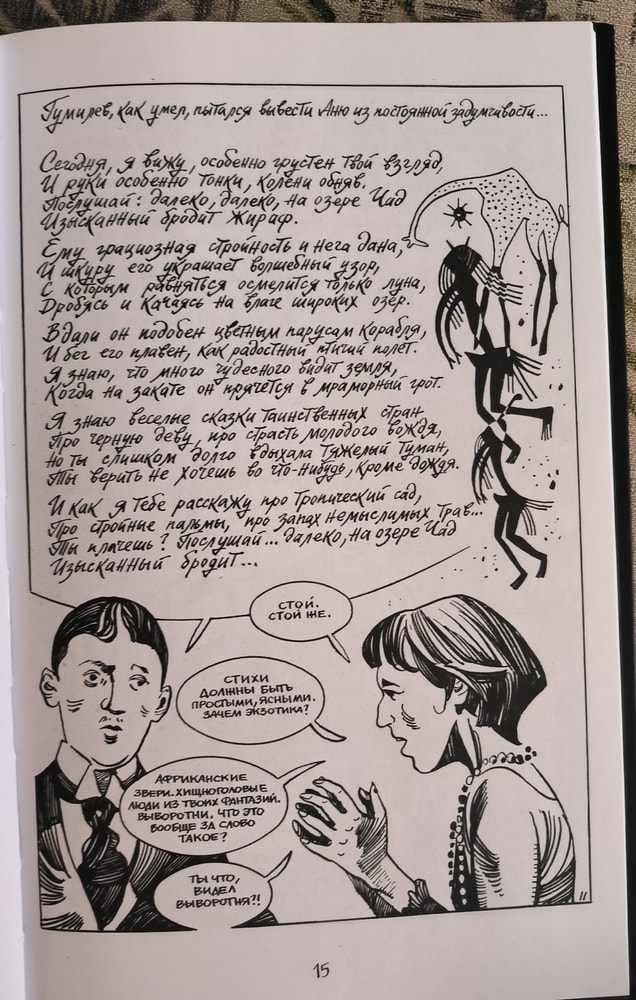 Гумилев, как умел, пытался вывести Аню из постоянной задумчивости...
Сегодня, я вижу, особенно грустен твой взгляд,
И руки особенно тонки, колени обняв.
Послушай: далеко, далеко, на озере Чад
Изысканный бродит жираф.
Ему грациозная стройность и нега дана,
И шкуру его украшает волшебный узор,
С которым равняться осмелится только луна,
Дробясь и качаясь на влаге широких озер.
Вдали он подобен цветным парусам корабля,
И бег его плавен, как радостный птичий полет.
Я знаю, что много чудесного видит земля,
Когда на закате он прячется в мраморный грот.
Я знаю веселые сказки таинственных стран
Про черную деву, про страсть молодого вождя,
Но ты слишком долго вдыхала тяжелый туман,
Ты верить не хочешь во что-нибудь, кроме дождя.
И как я тебе расскажу про тропический сад,
Про стройные пальмы, про запах немыслимых трав...
Ты плачешь? Послушай... далеко, на озере Чад
Изысканный бродит...
СТОЙ.
СТОЙ ЖЕ.
СТИХИ
ДОЛЖНЫ БЫТЬ
ПРОСТЫМИ, ЯСНЫМИ.
ЗАЧЕМ ЭКЗОТИКА?
АФРИКАНСКИЕ
ЗВЕРИ. ХИЩНОГОЛОВЫЕ
ЛЮДИ ИЗ ТВОИХ ФАНТАЗИЙ.
ВЫВОРОТНИ. ЧТО ЭТО
ВООБЩЕ ЗА СЛОВО
ТАКОЕ?
ТЫ ЧТО,
ВИДЕЛ
ВЫВОРОТНЯ?!
11
15